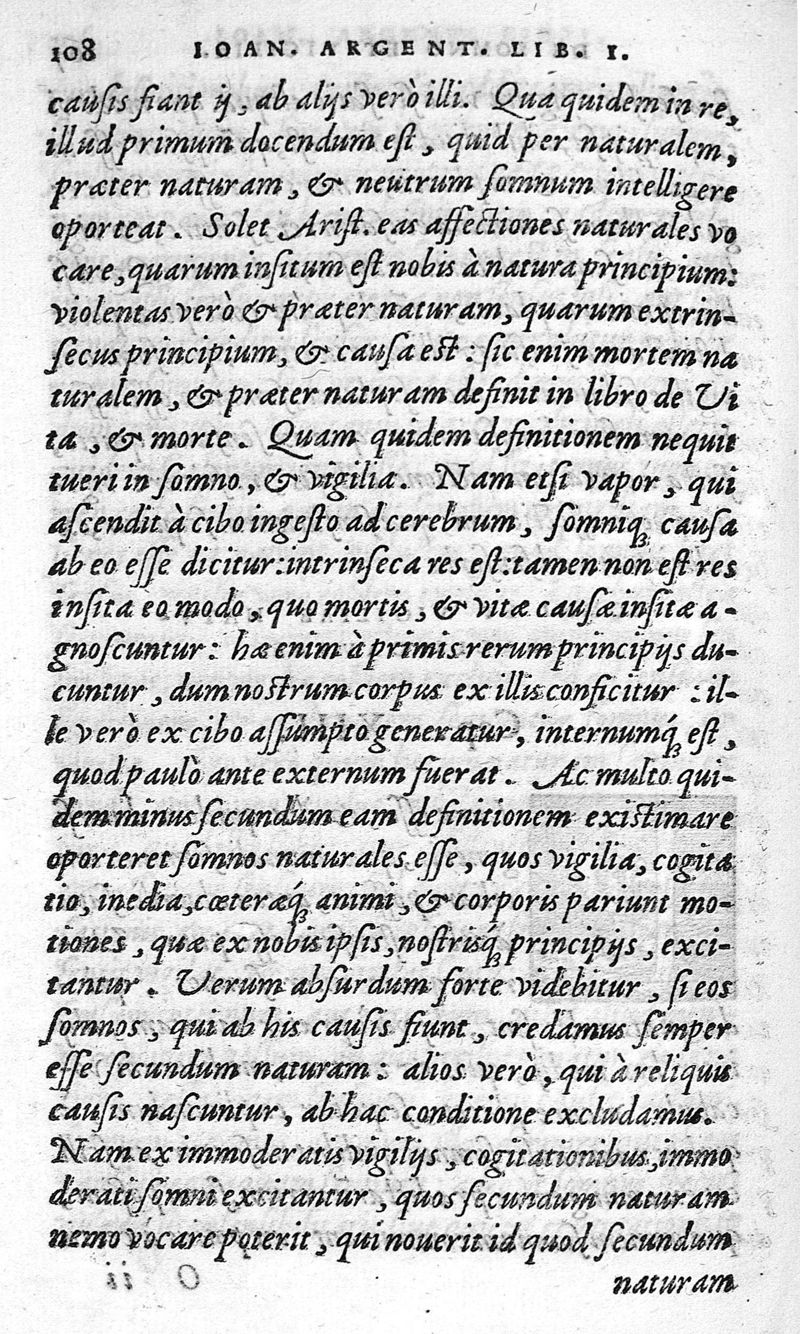 108 IOAN. ARGENT. LIB. I.
causis fiant ij, ab alijs verò illi. Qua quidem in re,
illud primum docendum est, quid per naturalem,
præter naturam, & neutrum somnum intelligere
oporteat. Solet Arist. eas affectiones naturales vo
care, quarum insitum est nobis à natura principium:
violentas verò & præter naturam, quarum extrin-
secus principium, & causa est: sic enim mortem na
turalem, & præter naturam definit in libro de Vi
ta, & morte. Quam quidem definitionem nequit
tueri in somno, & vigilia. Nam etsi vapor, qui
ascendit à cibo ingesto ad cerebrum, somniq; causa
ab eo esse dicitur: intrinseca res est: tamen non est res
insita eo modo, quo mortis, & vitæ causæ insitæ a-
gnoscuntur: hæ enim à primis rerum principijs du-
cuntur, dum nostrum corpus ex illis conficitur: il-
le verò ex cibo assumpto generatur, internumq́; est,
quod paulò ante externum fuerat. Ac multo qui-
dem minus secundum eam definitionem existimare
oporteret somnos naturales esse, quos vigilia, cogita
tio, inedia, cæteræq́; animi, & corporis pariunt mo-
tiones, quæ ex nobis ipsis, nostrisq́; principijs, exci-
tantur. Verum absurdum forte videbitur, si eos
somnos, qui ab his causis fiunt, credamus semper
esse secundum naturam: alios verò, qui à reliquis
causis nascuntur, ab hac conditione excludamus.
Nam ex immoderatis vigilijs, cogitationibus, immo
derati somni excitantur, quos secundum naturam
nemo vocare poterit, qui nouerit id quod secundum
naturam